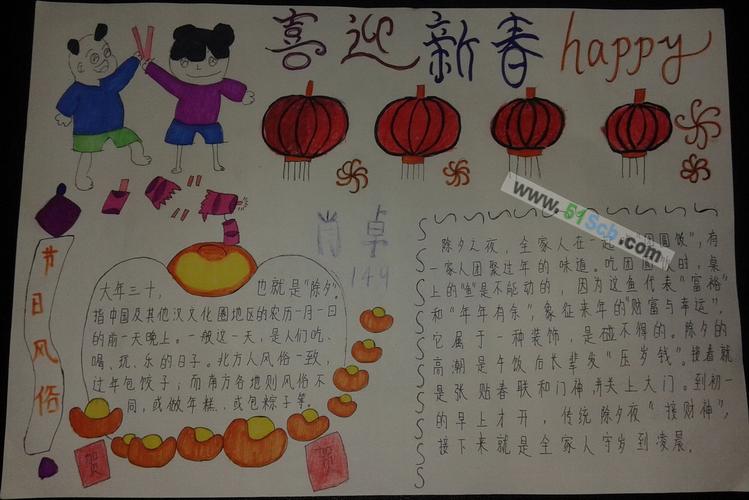 喜迎新春happy
www.51Scb.com
肖卓
149
节日风俗
大年三十, 也就是"除夕".
指中国及其他汉文化圈地区的农历一月一日
的前一天晚上。一般这一天,是人们吃、
喝、玩、乐的日子。北方人风俗一致,
过年包饺子;而南方各地则风俗不
同,或做年糕、或包粽子等。
贺
贺
除夕之夜,全家人在一起吃"团圆饭",有
一家人团聚过年的味道。吃团圆饭时,桌
上的"鱼"是不能动的,因为这鱼代表"富裕"
和"年年有余",象征来年的"财富与幸运",
它属于一种装饰,是碰不得的。除夕的
高潮是午饭后长辈发"压岁钱"。接着就
是张贴春联和门神,并关上大门。到初一
的早上才开,传统除夕夜"接财神",
接下来就是全家人守岁到凌晨。